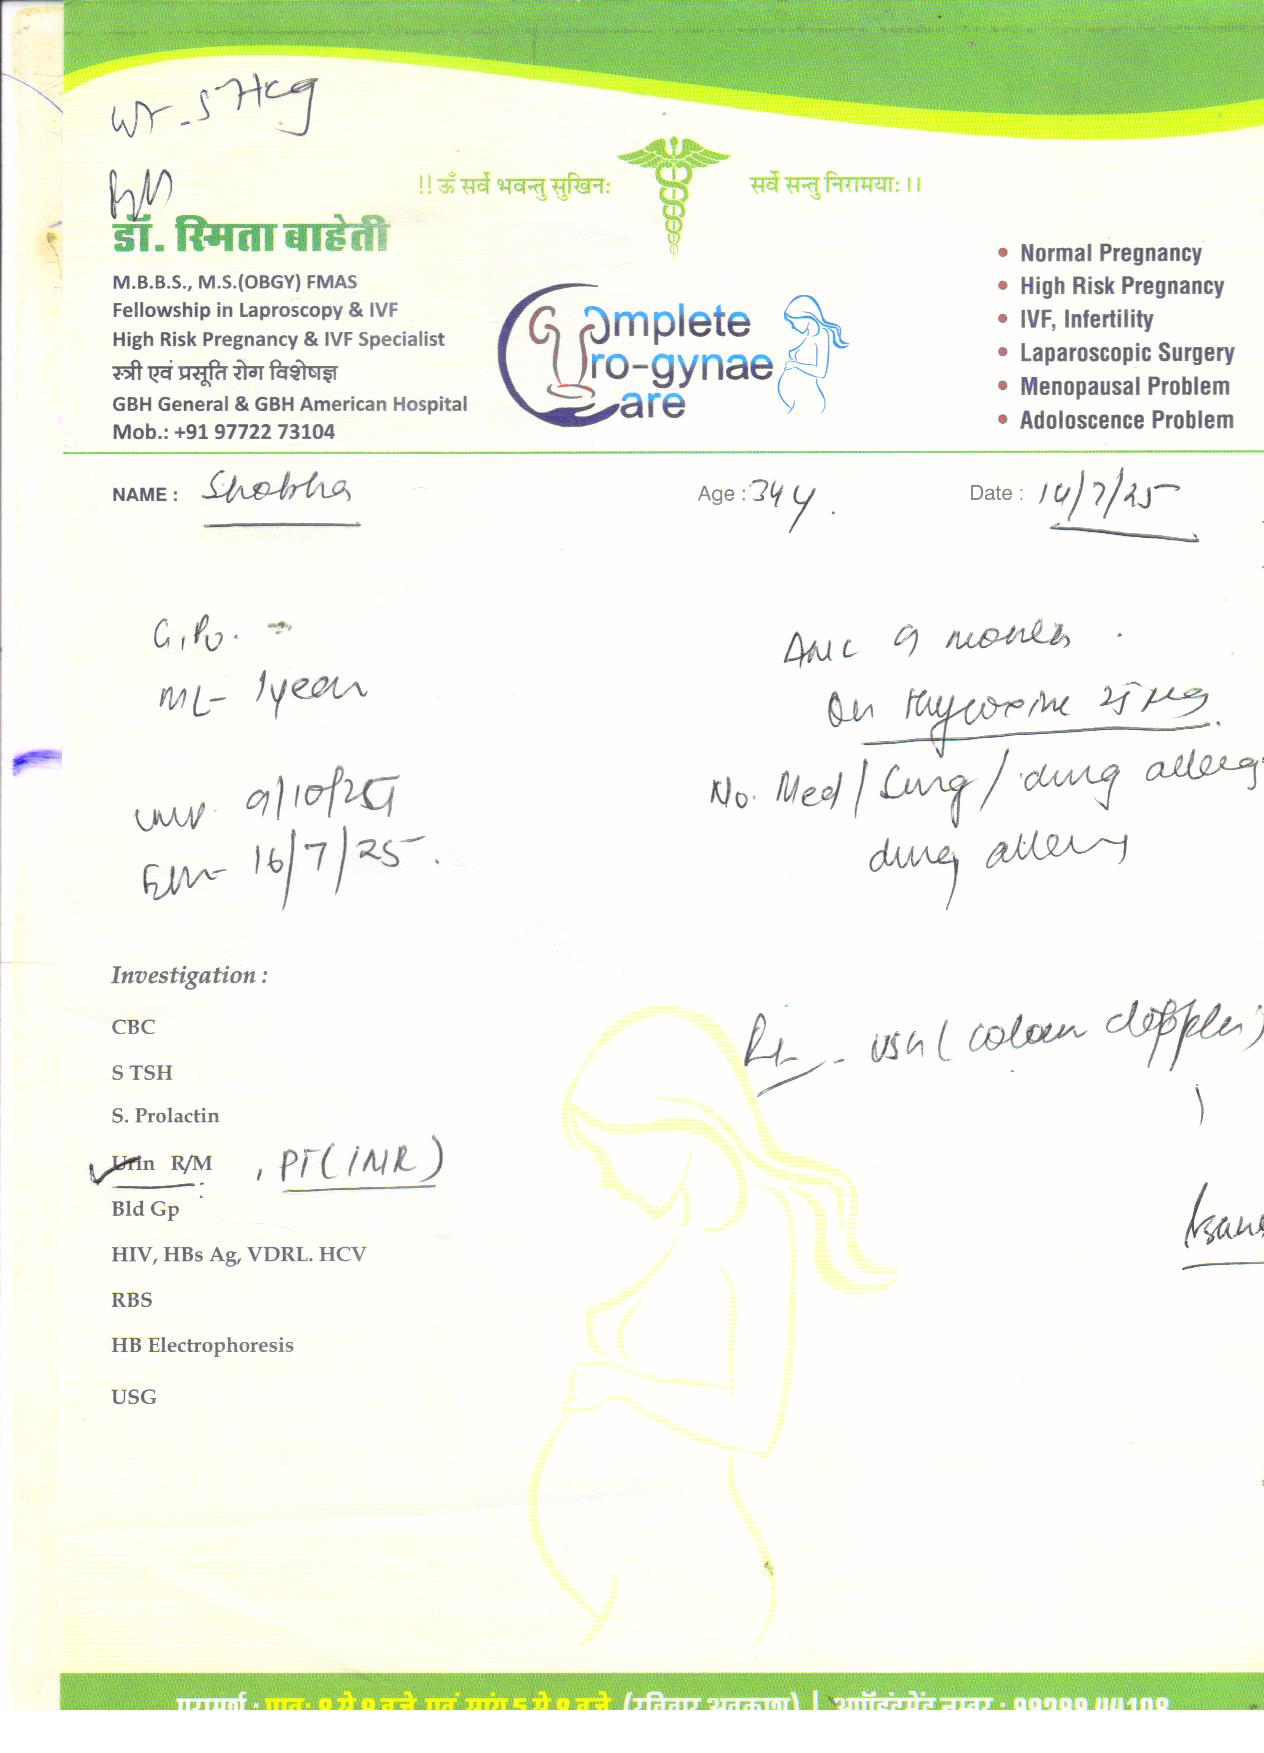 Wt - 57 kg
!! ॐ सर्वे भवन्तु सुखिनः सर्वे सन्तु निरामयाः ।।
डॉ. स्मिता बाहेती
M.B.B.S., M.S.(OBGY) FMAS
Fellowship in Laproscopy & IVF
High Risk Pregnancy & IVF Specialist
स्त्री एवं प्रसूति रोग विशेषज्ञ
GBH General & GBH American Hospital
Mob.: +91 97722 73104
Complete
Uro-gynae
Care
• Normal Pregnancy
• High Risk Pregnancy
• IVF, Infertility
• Laparoscopic Surgery
• Menopausal Problem
• Adoloscence Problem
NAME : Shobha Age : 34 y. Date : 14/7/25
G1P0.
ML- 1 year
ANC 9 months.
On thyroxine 25 µg.
No. Med / Surg / drug allergy
drug allergy
9/10/24
16/7/25.
Investigation :
CBC
S TSH
S. Prolactin
Urin R/M , PT (INR)
Bld Gp
HIV, HBs Ag, VDRL. HCV
RBS
HB Electrophoresis
USG
- USG (colour doppler)